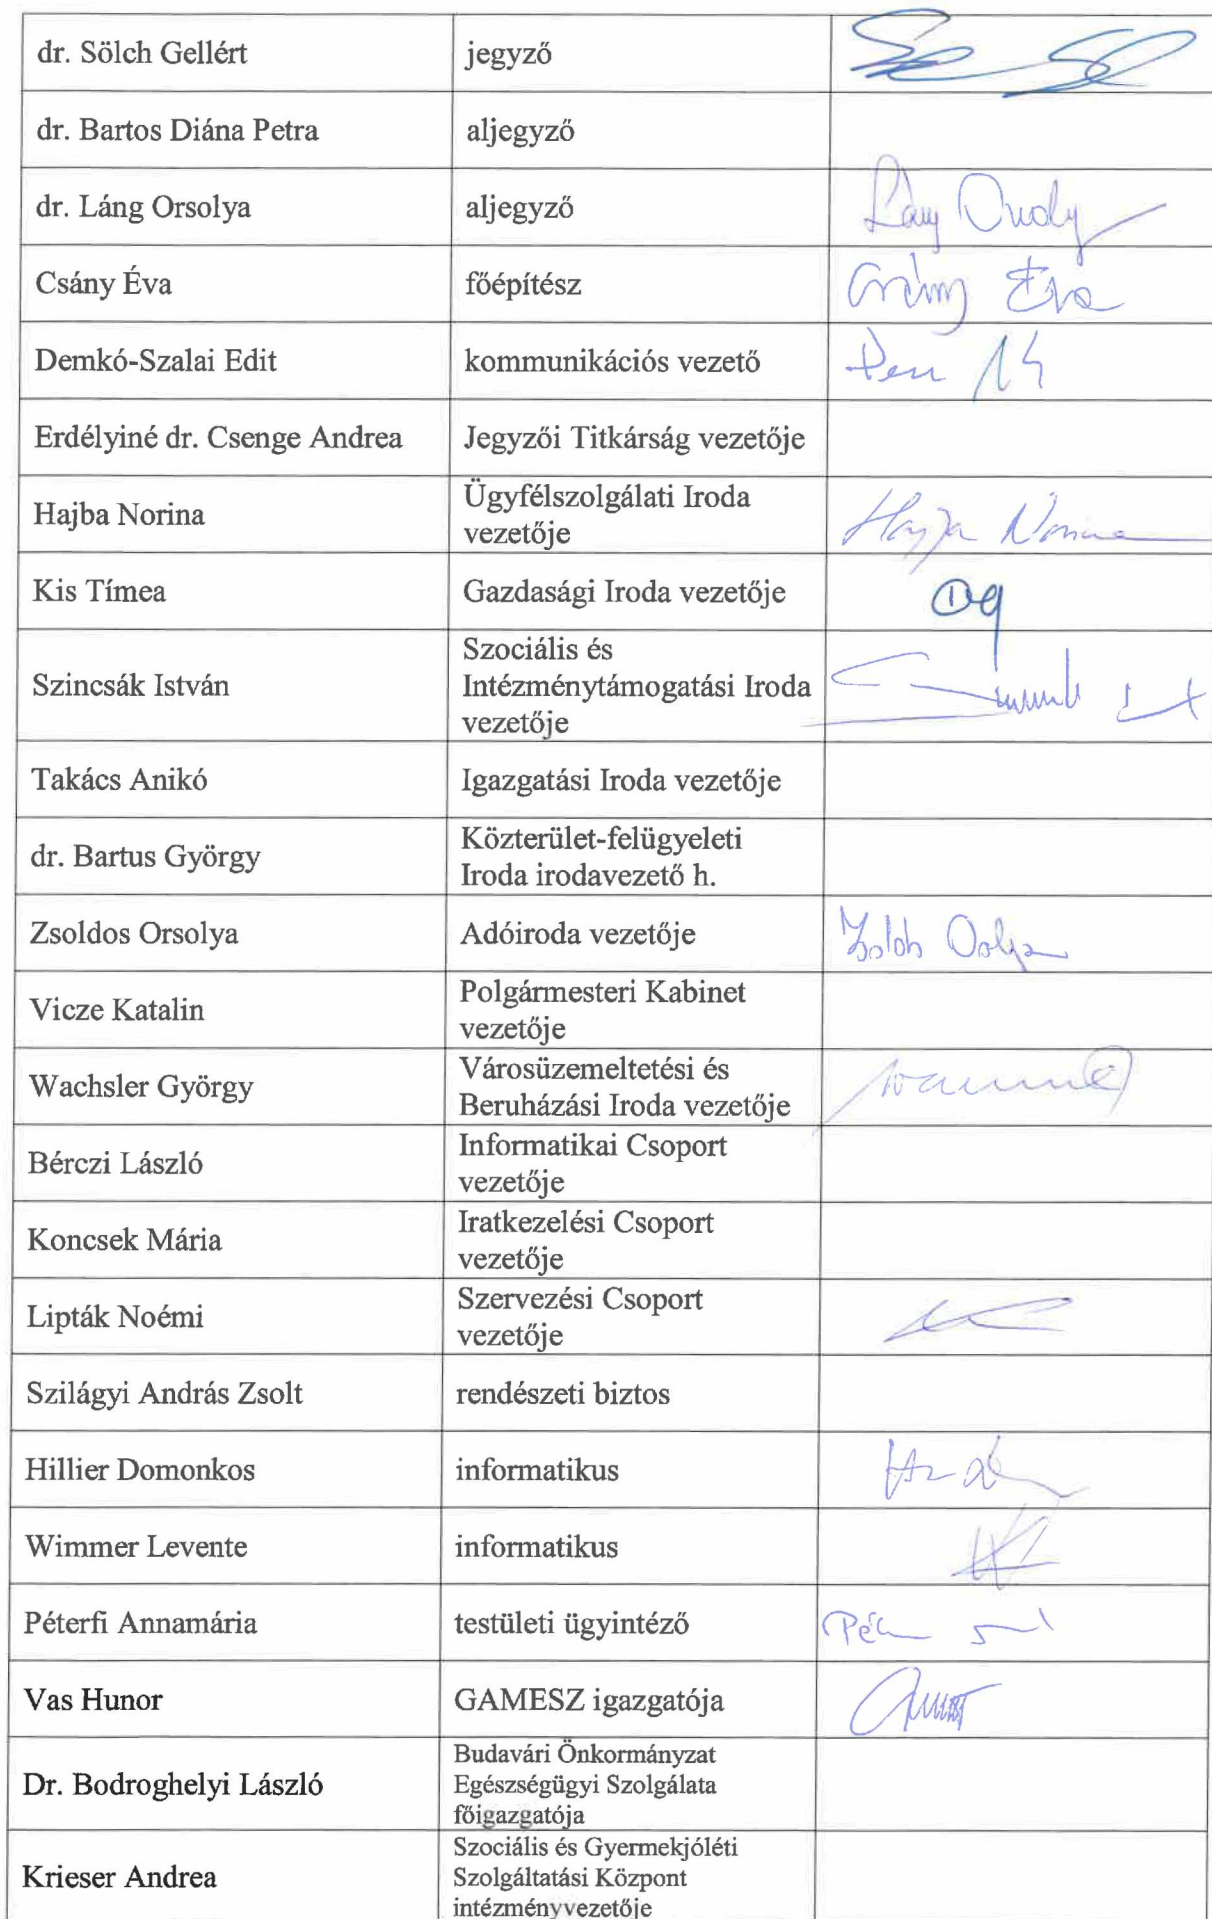 dr. Sölch Gellért jegyző
dr. Bartos Diána Petra aljegyző
dr. Láng Orsolya aljegyző
Csány Éva főépítész Csány Éva
Demkó-Szalai Edit kommunikációs vezető
Erdélyiné dr. Csenge Andrea Jegyzői Titkárság vezetője
Hajba Norina Ügyfélszolgálati Iroda
vezetője
Hajba Norina
Kis Tímea Gazdasági Iroda vezetője
Szincsák István Szociális és
Intézménytámogatási Iroda
vezetője
Takács Anikó Igazgatási Iroda vezetője
dr. Bartus György Közterület-felügyeleti
Iroda irodavezető h.
Zsoldos Orsolya Adóiroda vezetője
Vicze Katalin Polgármesteri Kabinet
vezetője
Wachsler György Városüzemeltetési és
Beruházási Iroda vezetője
Bérczi László Informatikai Csoport
vezetője
Koncsek Mária Iratkezelési Csoport
vezetője
Lipták Noémi Szervezési Csoport
vezetője
Szilágyi András Zsolt rendészeti biztos
Hillier Domonkos informatikus
Wimmer Levente informatikus
Péterfi Annamária testületi ügyintéző
Vas Hunor GAMESZ igazgatója
Dr. Bodroghelyi László Budavári Önkormányzat
Egészségügyi Szolgálata
főigazgatója
Krieser Andrea Szociális és Gyermekjóléti
Szolgáltatási Központ
intézményvezetője